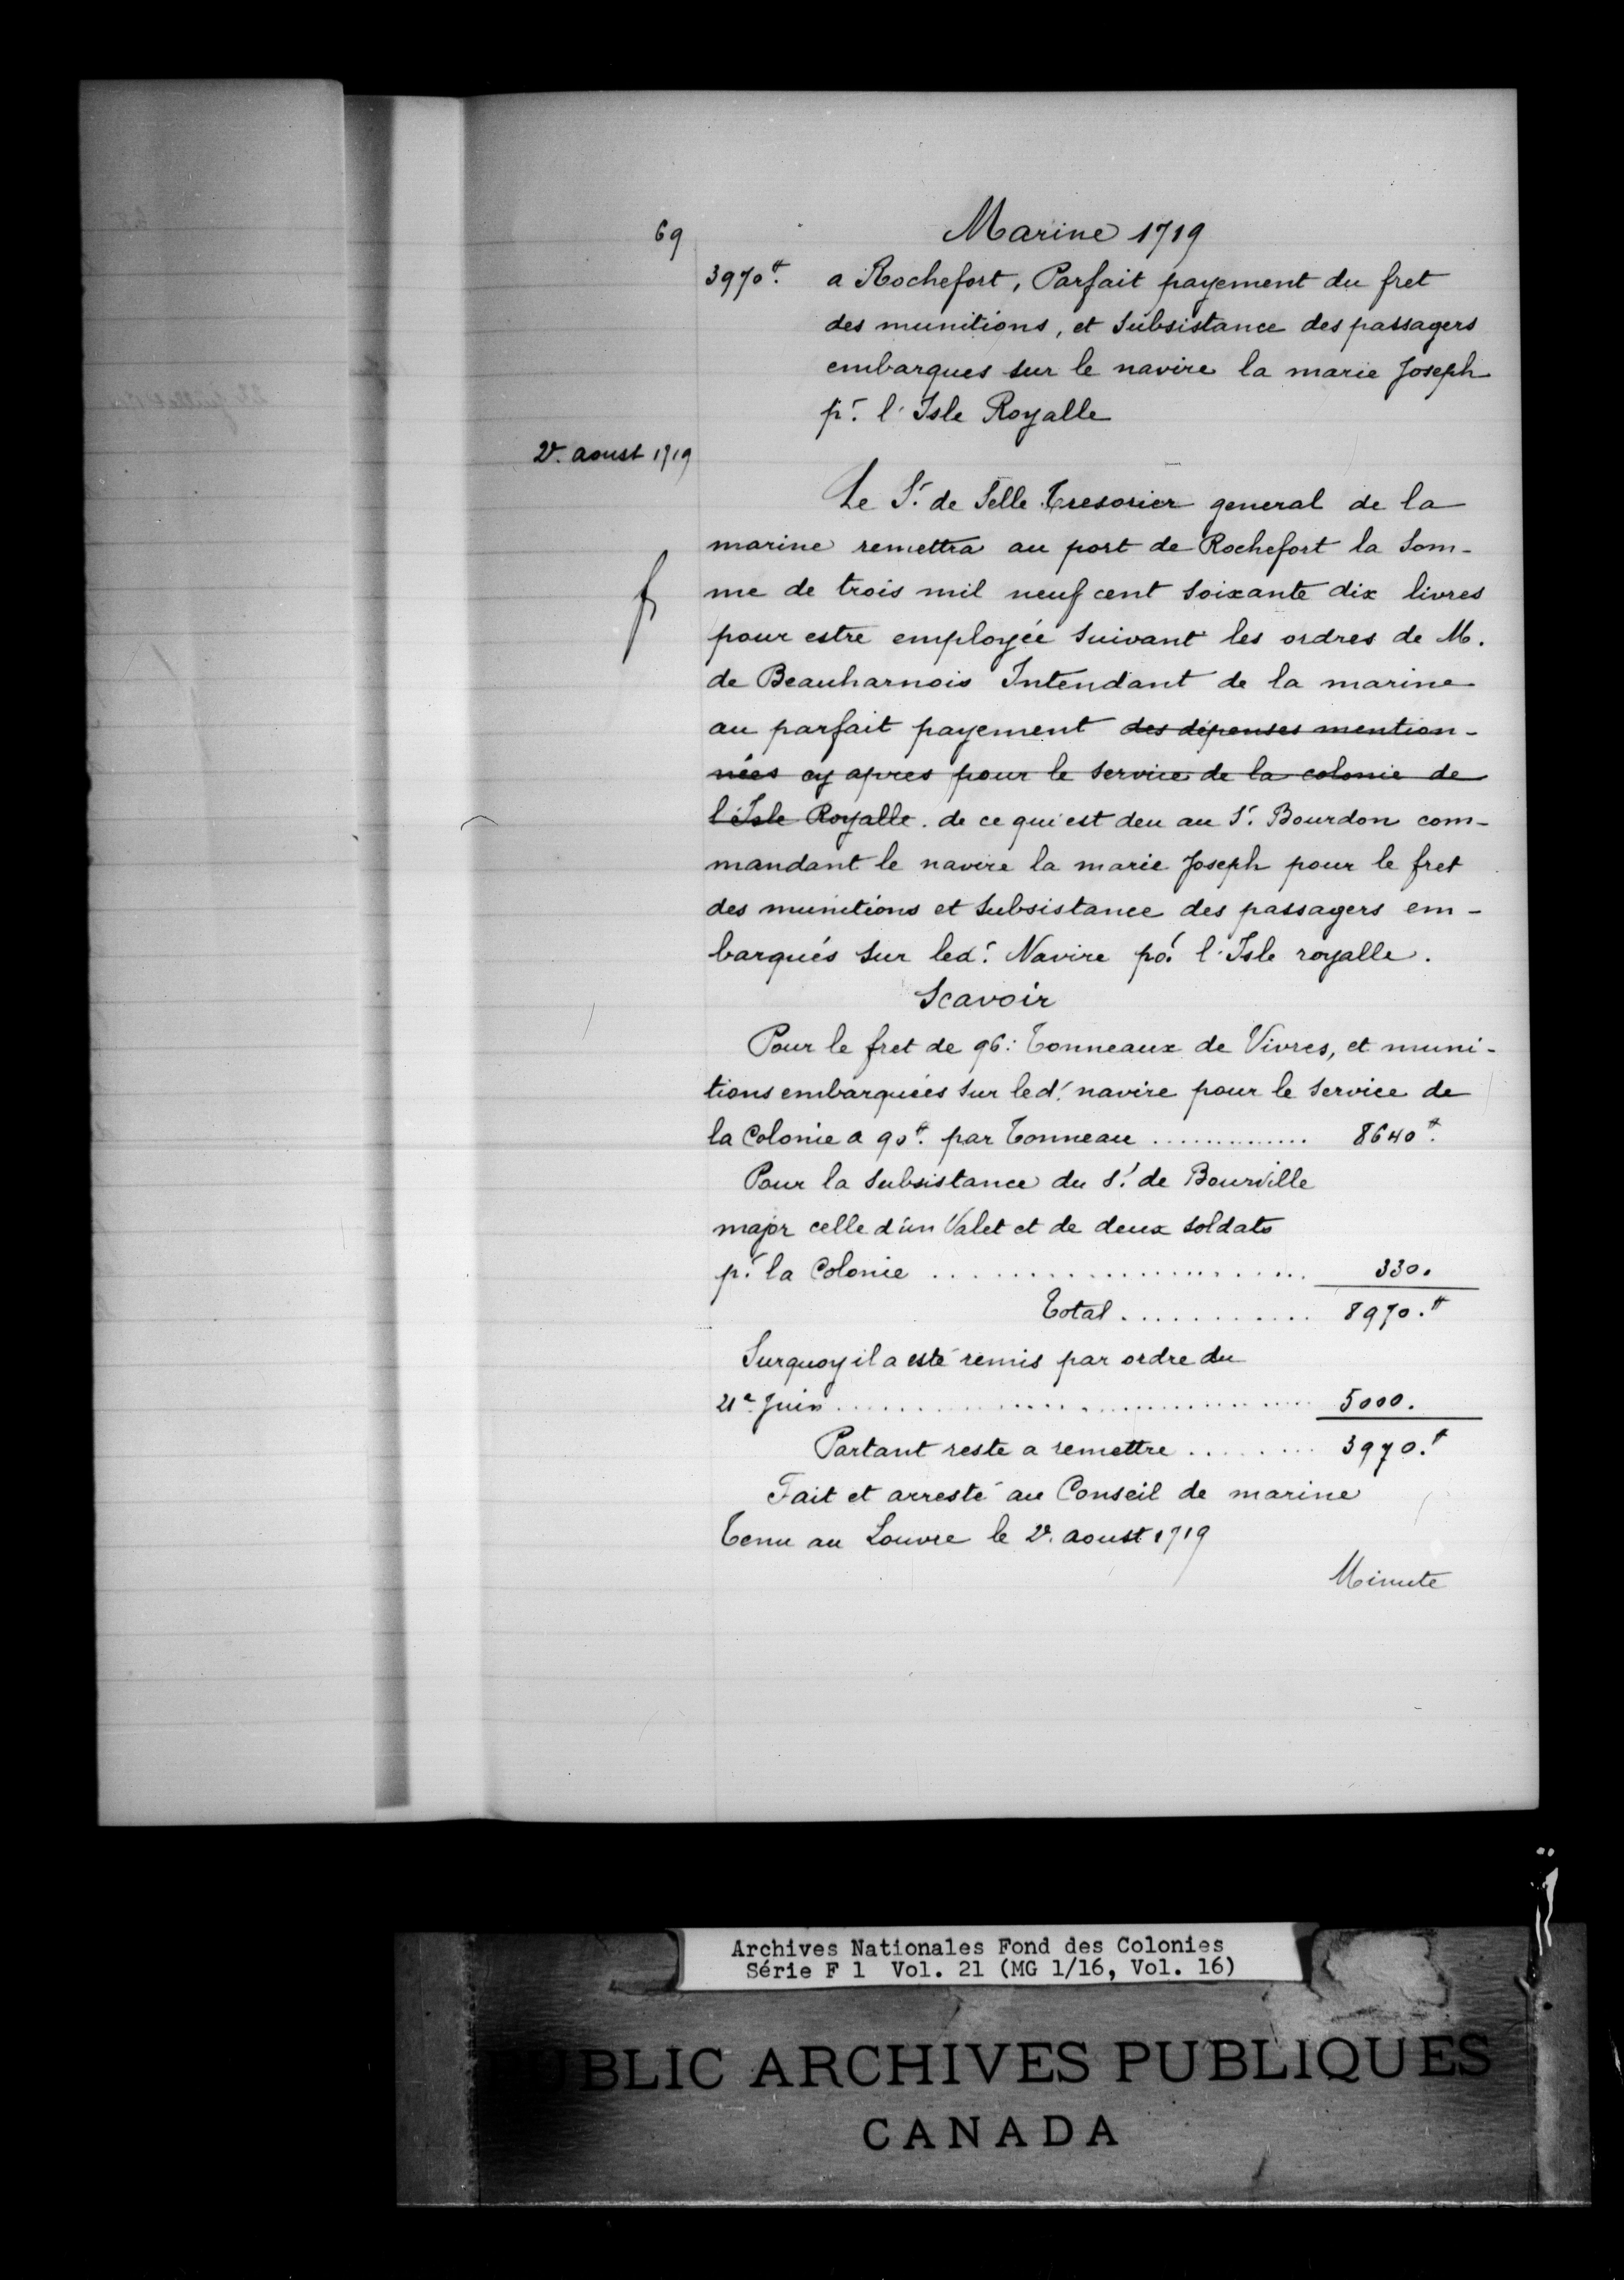 69
Marine 1719
3970tt. a Rochefort, Parfait payement du fret
des munitions, et subsistance des passagers
embarques sur le navire la marie Joseph
pr. l'Isle Royalle
2e. aoust 1719
Le Sr. de Selle Tresorier general de la
marine remettra au port de Rochefort la som-
me de trois mil neuf cent soixante dix livres
pour estre employée suivant les ordres de M.
de Beauharnois Intendant de la marine
au parfait payement des dépenses mention-
nées cy apres pour le service de la colonie de
l'Isle Royalle. de ce qui est deu au Sr. Bourdon com-
mandant le navire la marie Joseph pour le fret
des munitions et subsistance des passagers em-
barqués sur led. Navire po. l'Isle royalle.
Scavoir
Pour le fret de 96: Tonneaux de Vivres, et muni-
tions embarquées sur led. navire pour le service de
la Colonie a 90tt. par Tonneau ............. 8640tt.
Pour la subsistance du Sr. de Bourville
major celle d'un Valet et de deux soldats
pr. la Colonie ....................... 330.
Total ............ 8970.tt
Surquoy il a esté remis par ordre du
21e. Juin .............................. 5000.
Partant reste a remettre ........ 3970.tt
Fait et arresté au Conseil de marine
Tenu au Louvre le 2e. aoust 1719
Minute
Archives Nationales Fond des Colonies
Série F 1 Vol. 21 (MG 1/16, Vol. 16)
PUBLIC ARCHIVES PUBLIQUES
CANADA